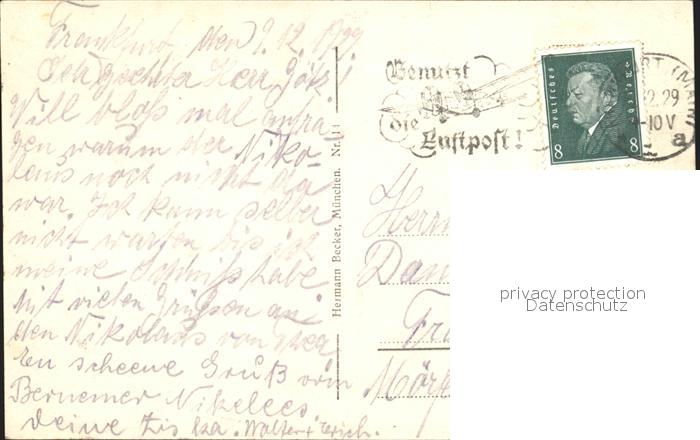 Frankfurt, den 9.12.1929
Geschter Herr Götz!
Will bloß mal anfra-
gen warum der Niko-
laus noch nicht da
war. Ich kann selber
nicht warten bis ich
meine habe
Mit vielen Grüßen an
den Nikolaus von
en scheene Gruß vom
Bernemer Nikelees
deine Walter + Erich.
Hermann Becker, München. Nr.
Benutzt
die
Luftpost!
Deutsches Reich
8 8
12.29
-10 V
a
Herrn
Dan
Fr
Mörf
privacy protection
Datenschutz